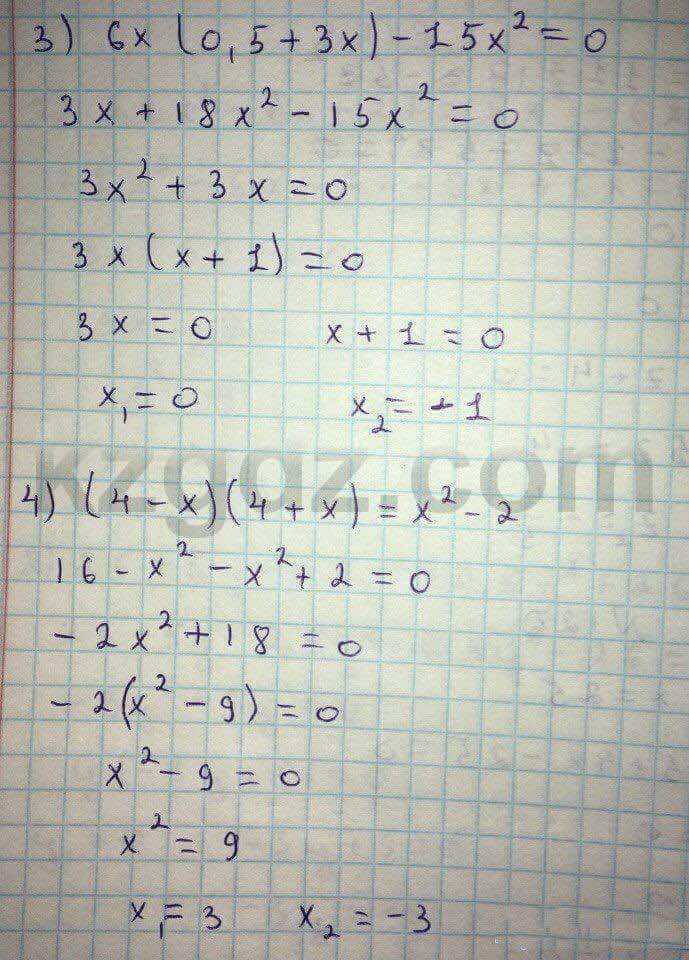 3) 6x (0,5 + 3x) - 15x² = 0
3x + 18x² - 15x² = 0
3x² + 3x = 0
3x (x + 1) = 0
3x = 0 x + 1 = 0
x₁ = 0 x₂ = -1
kzgdz.com
4) (4 - x)(4 + x) = x² - 2
16 - x² - x² + 2 = 0
- 2x² + 18 = 0
- 2(x² - 9) = 0
x² - 9 = 0
x² = 9
x₁ = 3 x₂ = -3